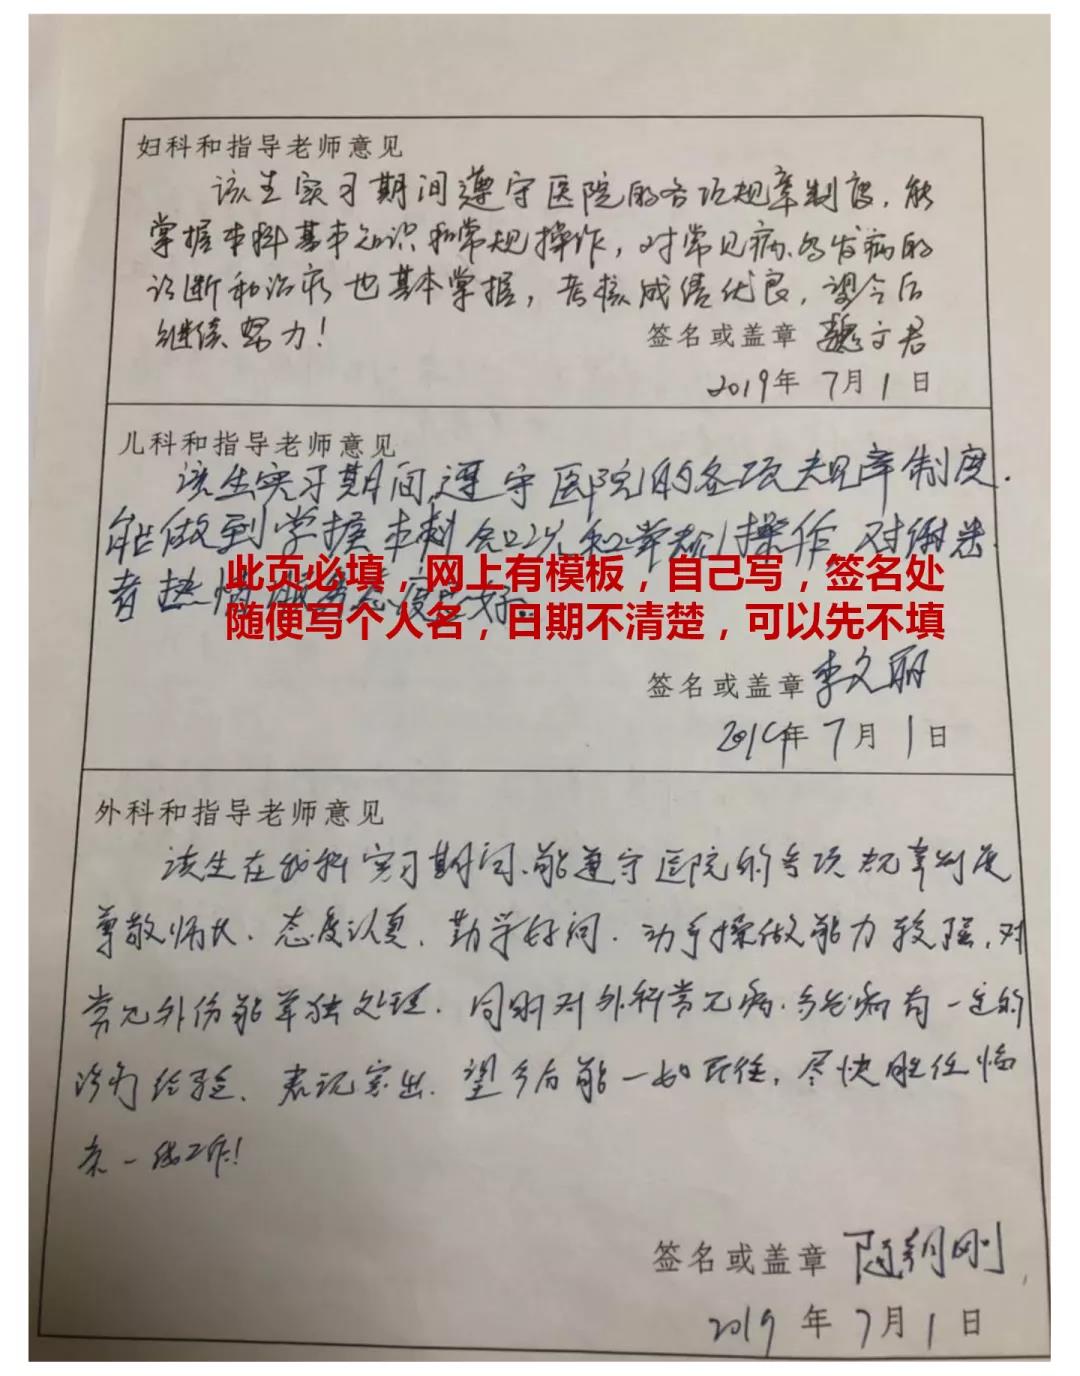 妇科和指导老师意见
该生实习期间遵守医院的各项规章制度，能
掌握本科基本知识和常规操作，对常见病、多发病的
诊断和治疗也基本掌握，考核成绩优良，望今后
继续努力！
签名或盖章 魏文君
2019年 7月 1日
儿科和指导老师意见
该生实习期间，遵守医院的各项规章制度.
能做到掌握本科 和常规操作 对 患
此页必填，网上有模板，自己写，签名处
者热情 态度 好.
随便写个人名，日期不清楚，可以先不填
签名或盖章 李文丽
年 7月 1日
外科和指导老师意见
该生在我科实习期间、能遵守医院的各项规章制度
尊敬师长、态度认真、勤学好问、动手操做能力较强，对
常见外伤能单独处理、同时对外科常见病、多发病有一定的
诊疗经验、表现突出、望今后能一如既往，尽快胜任临
床一线工作！
签名或盖章 刚
2019 年 7月 1日